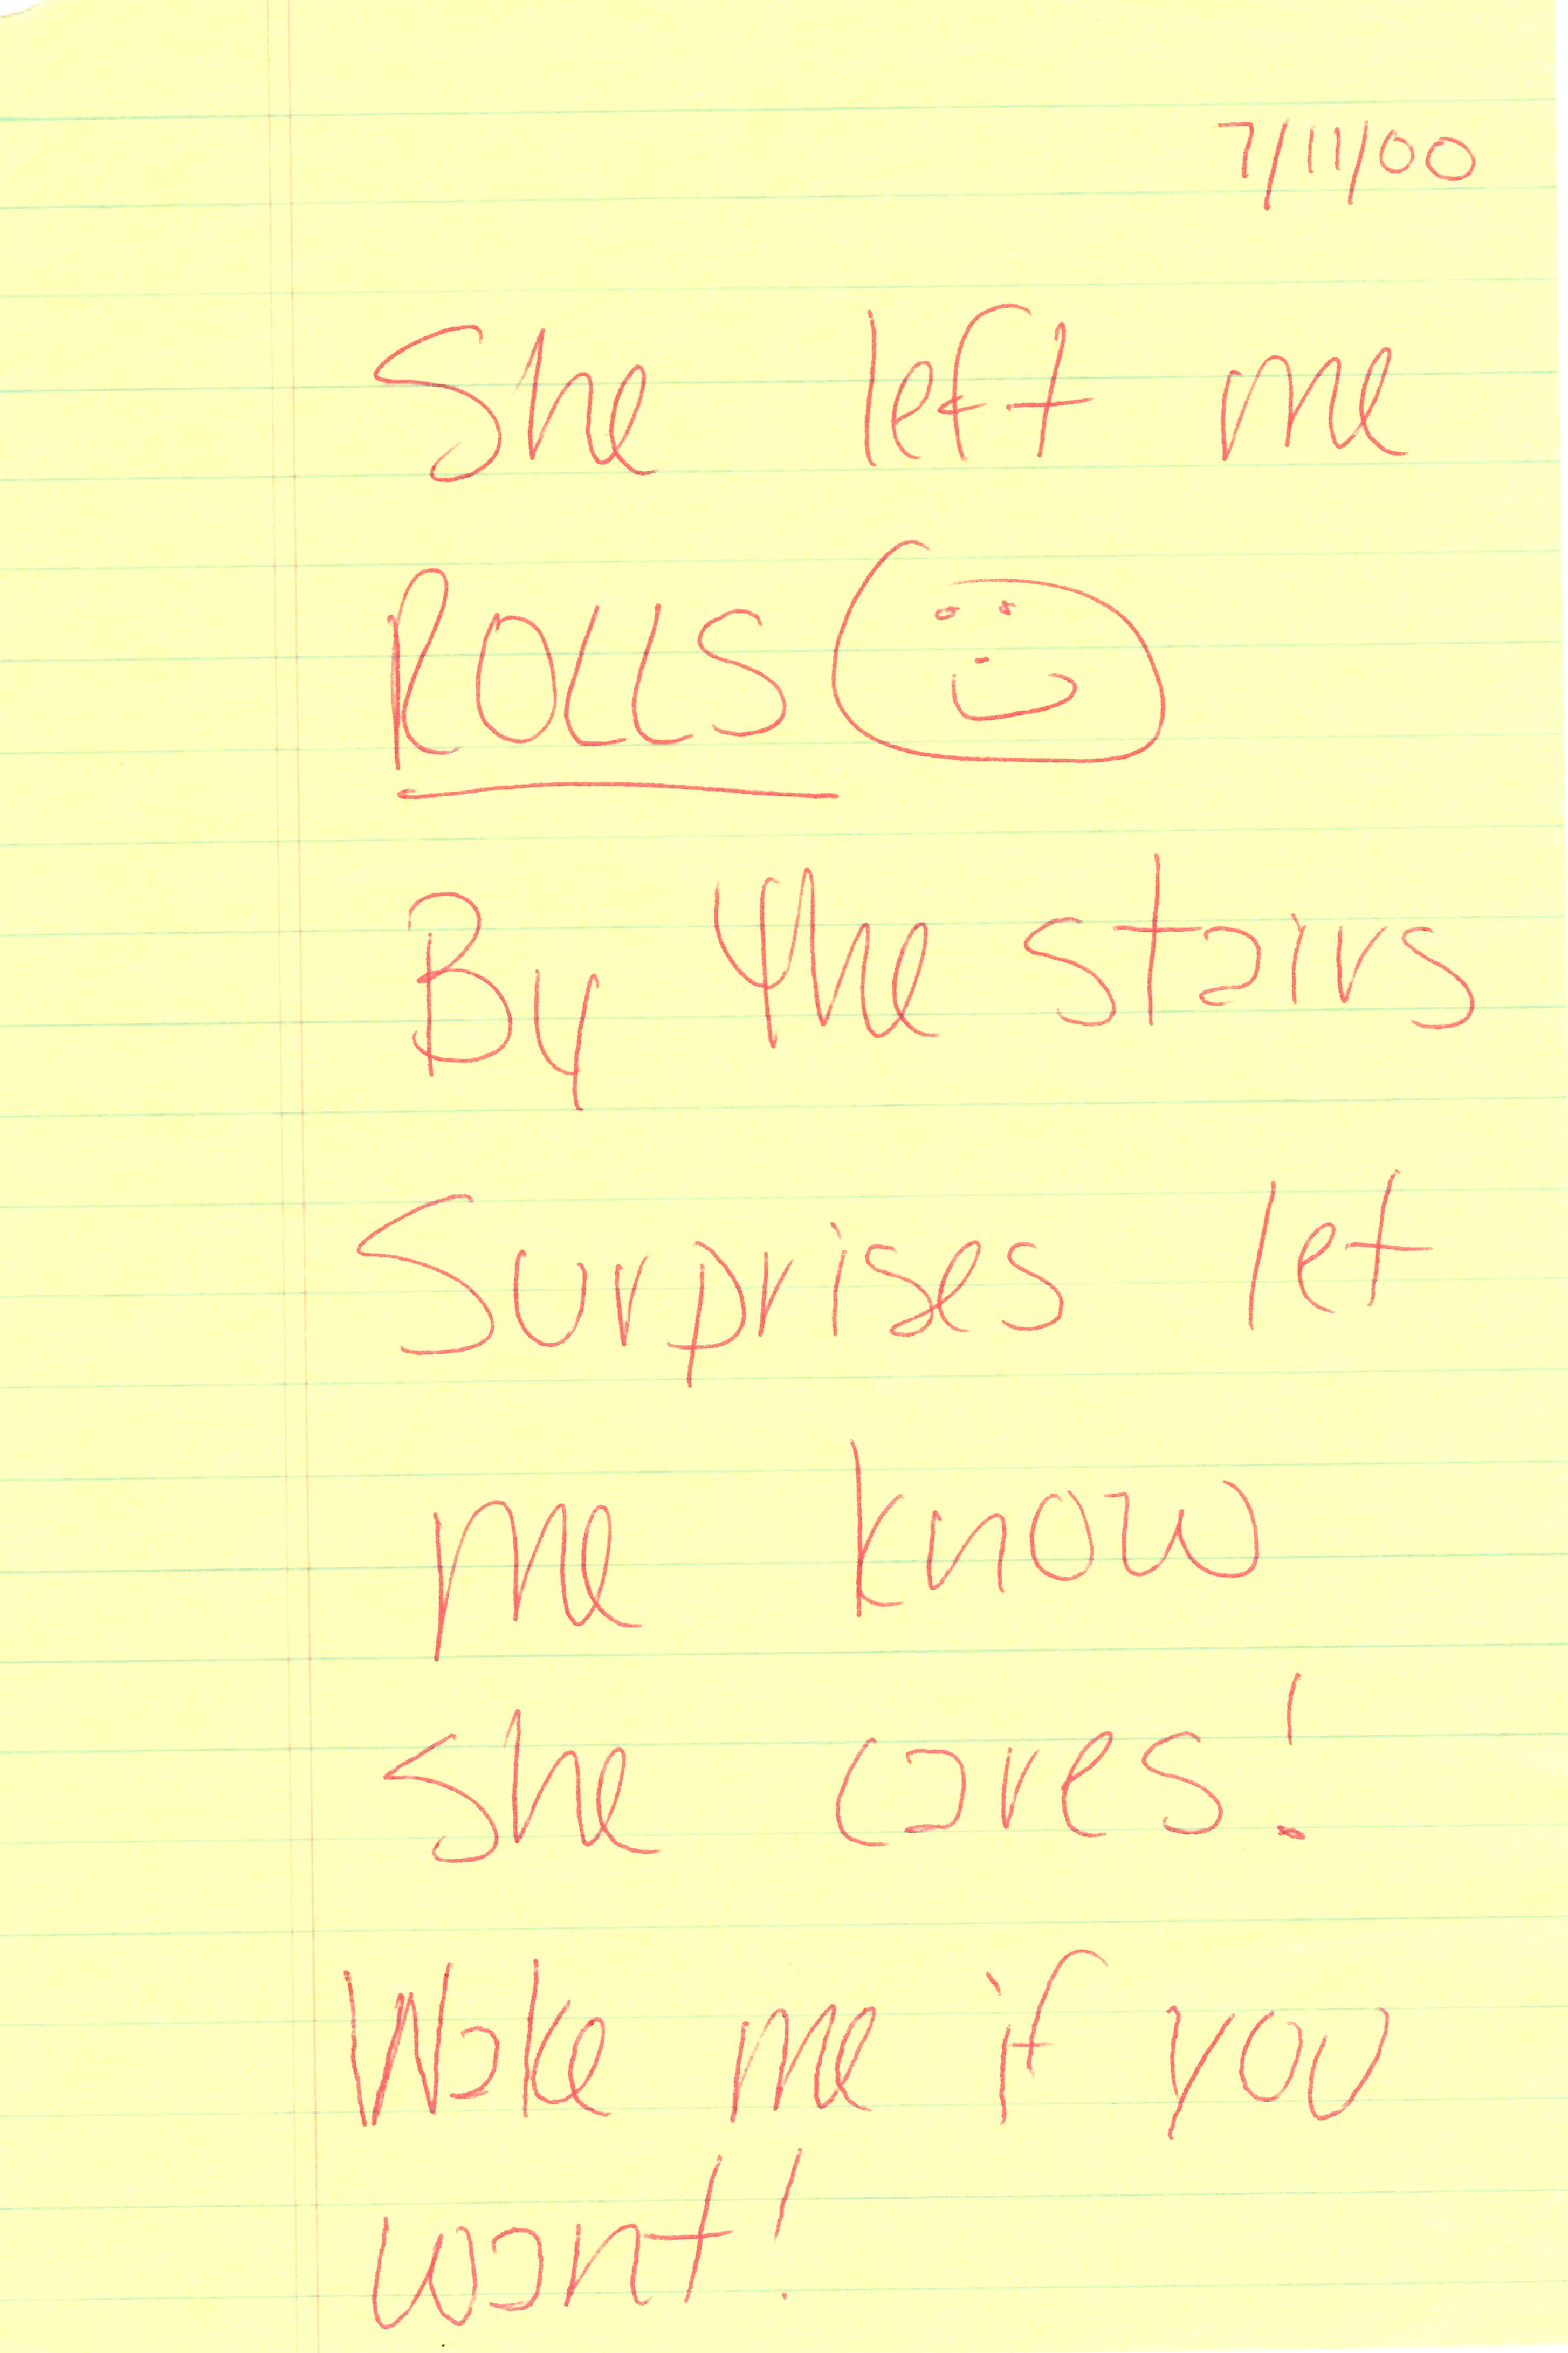 7/11/00
She left me
ROLLS
By the stairs
Surprises let
me know
she cares!
Wake me if you
want!